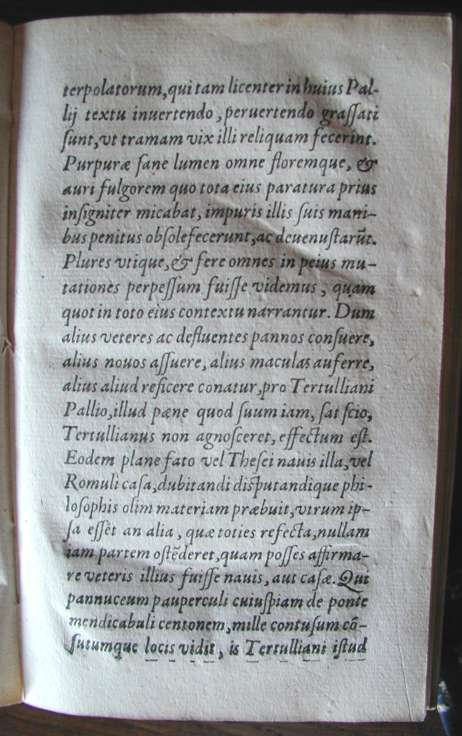 terpolatorum, qui tam licenter in huius Pal-
lij textu inuertendo, peruertendo graſſati
ſunt, vt tramam vix illi reliquam fecerint.
Purpuræ ſane lumen omne floremque, &
auri fulgorem quo tota eius paratura prius
inſigniter micabat, impuris illis ſuis mani-
bus penitus obſolefecerunt, ac deuenuſtarūt.
Plures vtique, & fere omnes in peius mu-
tationes perpeſſum fuiſſe videmus, quam
quot in toto eius contextu narrantur. Dum
alius veteres ac defluentes pannos conſuere,
alius nouos aſſuere, alius maculas auferre,
alius aliud reficere conatur, pro Tertulliani
Pallio, illud pæne quod ſuum iam, ſat ſcio,
Tertullianus non agnoſceret, effectum eſt.
Eodem plane fato vel Theſei nauis illa, vel
Romuli caſa, dubitandi diſputandique phi-
loſophis olim materiam præbuit, vtrum ip-
ſa eſſet an alia, quæ toties refecta, nullam
iam partem oſtēderet, quam poſſes affirma-
re veteris illius fuiſſe nauis, aut caſæ. Qui
pannuceum pauperculi cuiuſpiam de ponte
mendicabuli centonem, mille contuſum cō-
ſutumque locis vidit, is Tertulliani iſtud